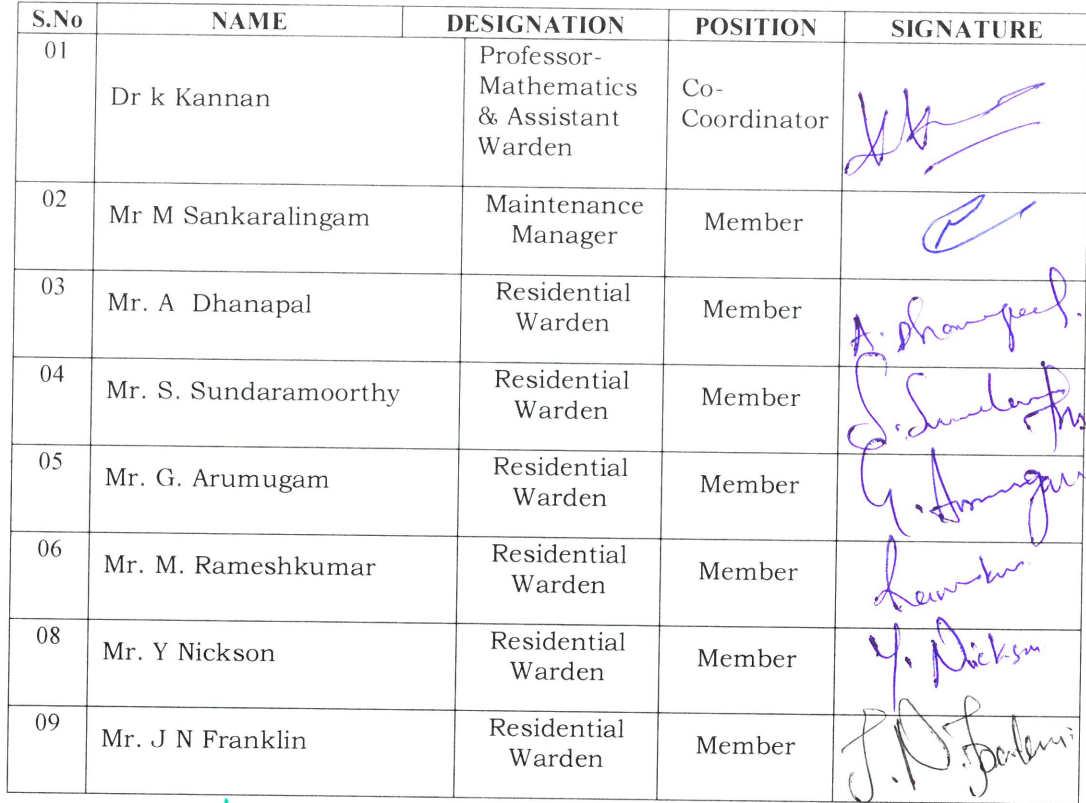 S.No NAME DESIGNATION POSITION SIGNATURE
01 Dr k Kannan Professor-
Mathematics
& Assistant
Warden Co-
Coordinator
02 Mr M Sankaralingam Maintenance
Manager Member
03 Mr. A Dhanapal Residential
Warden Member A. Dhanapal.
04 Mr. S. Sundaramoorthy Residential
Warden Member
05 Mr. G. Arumugam Residential
Warden Member G. Arumugam
06 Mr. M. Rameshkumar Residential
Warden Member
08 Mr. Y Nickson Residential
Warden Member Y. Nickson
09 Mr. J N Franklin Residential
Warden Member